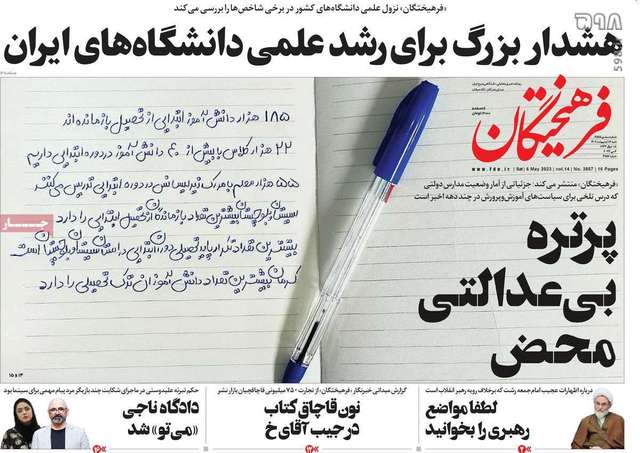 «فرهیختگان» نزول علمی دانشگاه‌های کشور در برخی شاخص‌ها را بررسی می‌کند
هشدار بزرگ برای رشد علمی دانشگاه‌های ایران
۵۹۸
فرهیختگان
www.fdn.ir | Sat | 6 May 2023 | vol.14 | No. 3867 | 16 Pages
«فرهیختگان» منتشر می‌کند: جزئیاتی از آمار وضعیت مدارس دولتی
که درس تلخی برای سیاست‌های آموزش‌وپرورش در چند دهه اخیر است
پرتره
بی‌عدالتی
محض
۱۸۵ هزار دانش‌آموز ابتدایی از تحصیل بازمانده‌اند
۲۲ هزار کلاس با بیش از ۴۰ دانش‌آموز در دوره ابتدایی داریم
۵۵ هزار معلم با مدرک زیر لیسانس در دوره ابتدایی تدریس می‌کنند
سیستان‌وبلوچستان بیشترین تعداد بازمانده از تحصیل ابتدایی را دارد
بیشترین تعداد تکرار پایه تحصیلی دوره ابتدایی در استان سیستان‌وبلوچستان است
کرمان بیشترین تعداد دانش‌آموزان ترک تحصیلی را دارد
جـــار
۱۴ و ۱۵
درباره اظهارات عجیب امام‌جمعه رشت که برخلاف رویه رهبر انقلاب است
لطفا مواضع
رهبری را بخوانید
۲
گزارش میدانی خبرنگار «فرهیختگان» از تجارت ۷۵۰ میلیونی قاچاقچیان بازار نشر
نون قاچاق کتاب
در جیب آقای خ
۱۲
حکم تبرئه علیدوستی در ماجرای شکایت چند بازیگر مرد پیام مهمی برای سینما بود
دادگاه ناجی
«می‌تو» شد